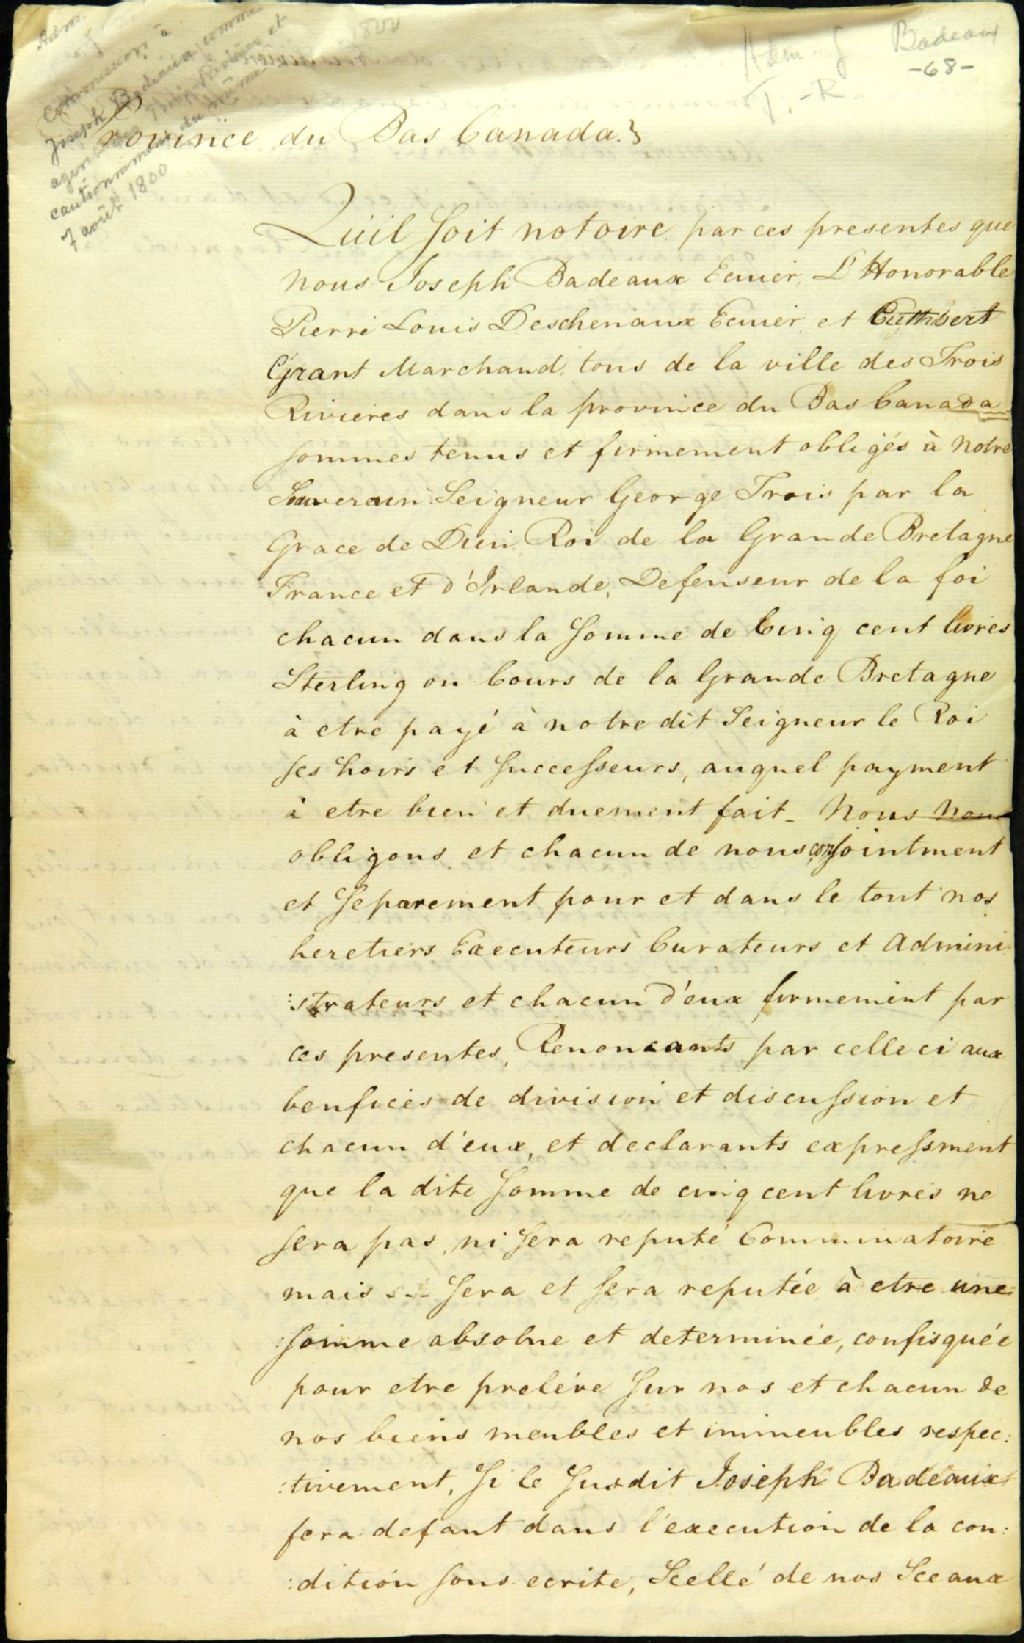 Adm.
Commission à
Joseph Badeaux comme
agent Trois Rivières et
cautionnement du même
7 août 1800
Adm J
T.-R
Badeaux
-68-
Province du Bas Canada.}
Qu'il soit notoire par ces presentes que
nous Joseph Badeaux Ecuier, L'Honorable
Pierre Louis Deschenaux Ecuier, et Cuthbert
Grant Marchand, tous de la ville des Trois
Rivieres dans la province du Bas Canada
sommes tenus et firmement obligés à notre
Souverain Seigneur George Trois par la
Grace de Dieu, Roi de la Grande Bretagne
France et d'Irlande, Defenseur de la foi
chacun dans la somme de Cinq cent livres
Sterling ou Cours de la Grande Bretagne
à etre payé à notre dit Seigneur le Roi
ses hoirs et successeurs, auquel payment
à etre bien et duement fait_ Nous nous
obligons et chacun de nous conjointment
et separement pour et dans le tout nos
heretiers Executeurs Curateurs et Admini
:strateurs et chacun d'eux firmement par
ces presentes, Renoncants par celle ci aux
benfices de division et discussion et
chacun d'eux, et declarants expressment
que la dite somme de cinq cent livres ne
sera pas, ni sera reputé Comminatoire
mais sera et sera reputée à etre une
somme absolue et determinée, confisquée
pour etre prelévé sur nos et chacun de
nos biens meubles et immeubles respec:
:tivement, si le susdit Joseph Badeaux
fera defaut dans l'execution de la con:
:dition sous ecrite, Scellé de nos Sceaux